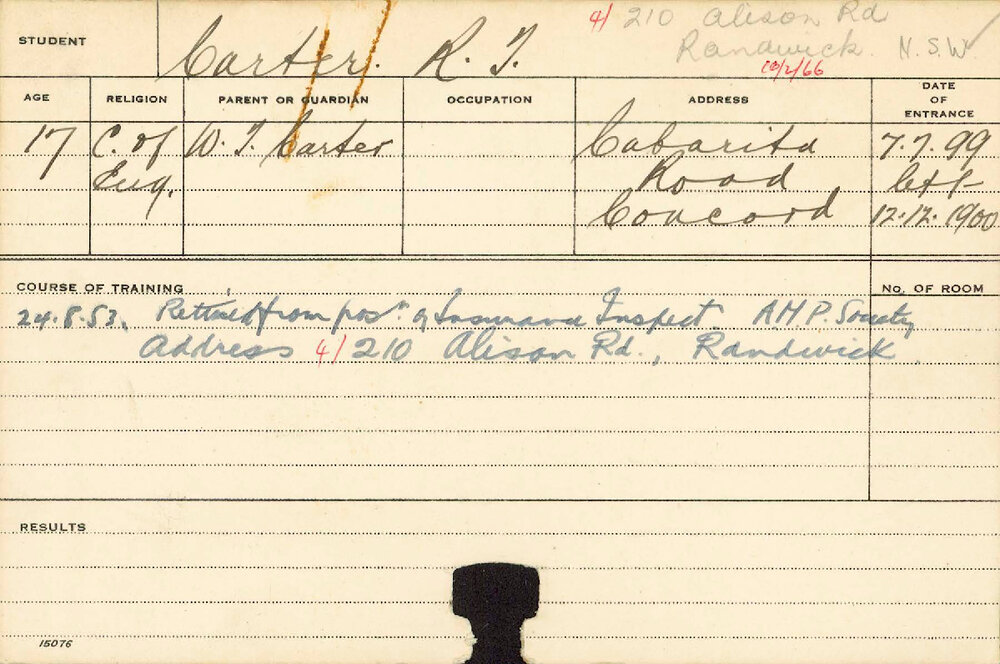 STUDENT
Carter. R. T.
4/ 210 Alison Rd
Randwick. N.S.W.
10/2/66
AGE RELIGION PARENT OR GUARDIAN OCCUPATION ADDRESS DATE OF ENTRANCE
17 C. of W. T. Carter Cabarita 7.7.99
Eng. Road left
Concord 12.12.1900
COURSE OF TRAINING No. OF ROOM
24.8.53. Retired from posn. of Insurance Inspect. A.M.P. Society
Address 4/210 Alison Rd., Randwick
RESULTS
15076